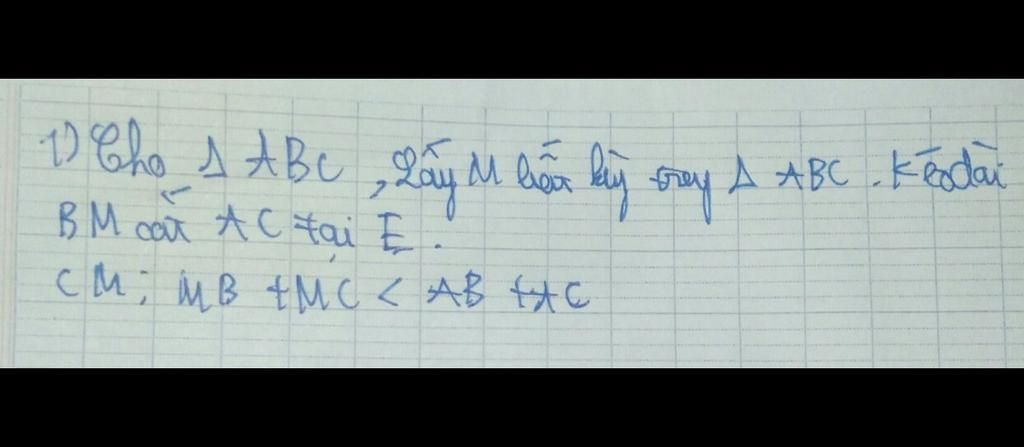 1) Cho Δ ABC, Lấy M bất kỳ trong Δ ABC. Kéo dài
BM cắt AC tại E.
CM: MB + MC < AB + AC